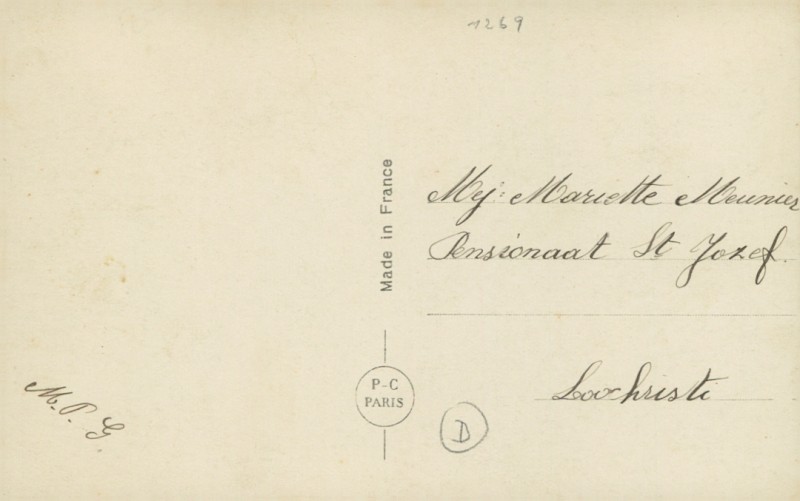 1269
Mej: Mariette Meunier
Pensionaat St Jozef.
Loochristi
Made in France
P-C
PARIS
D
M.P.G.